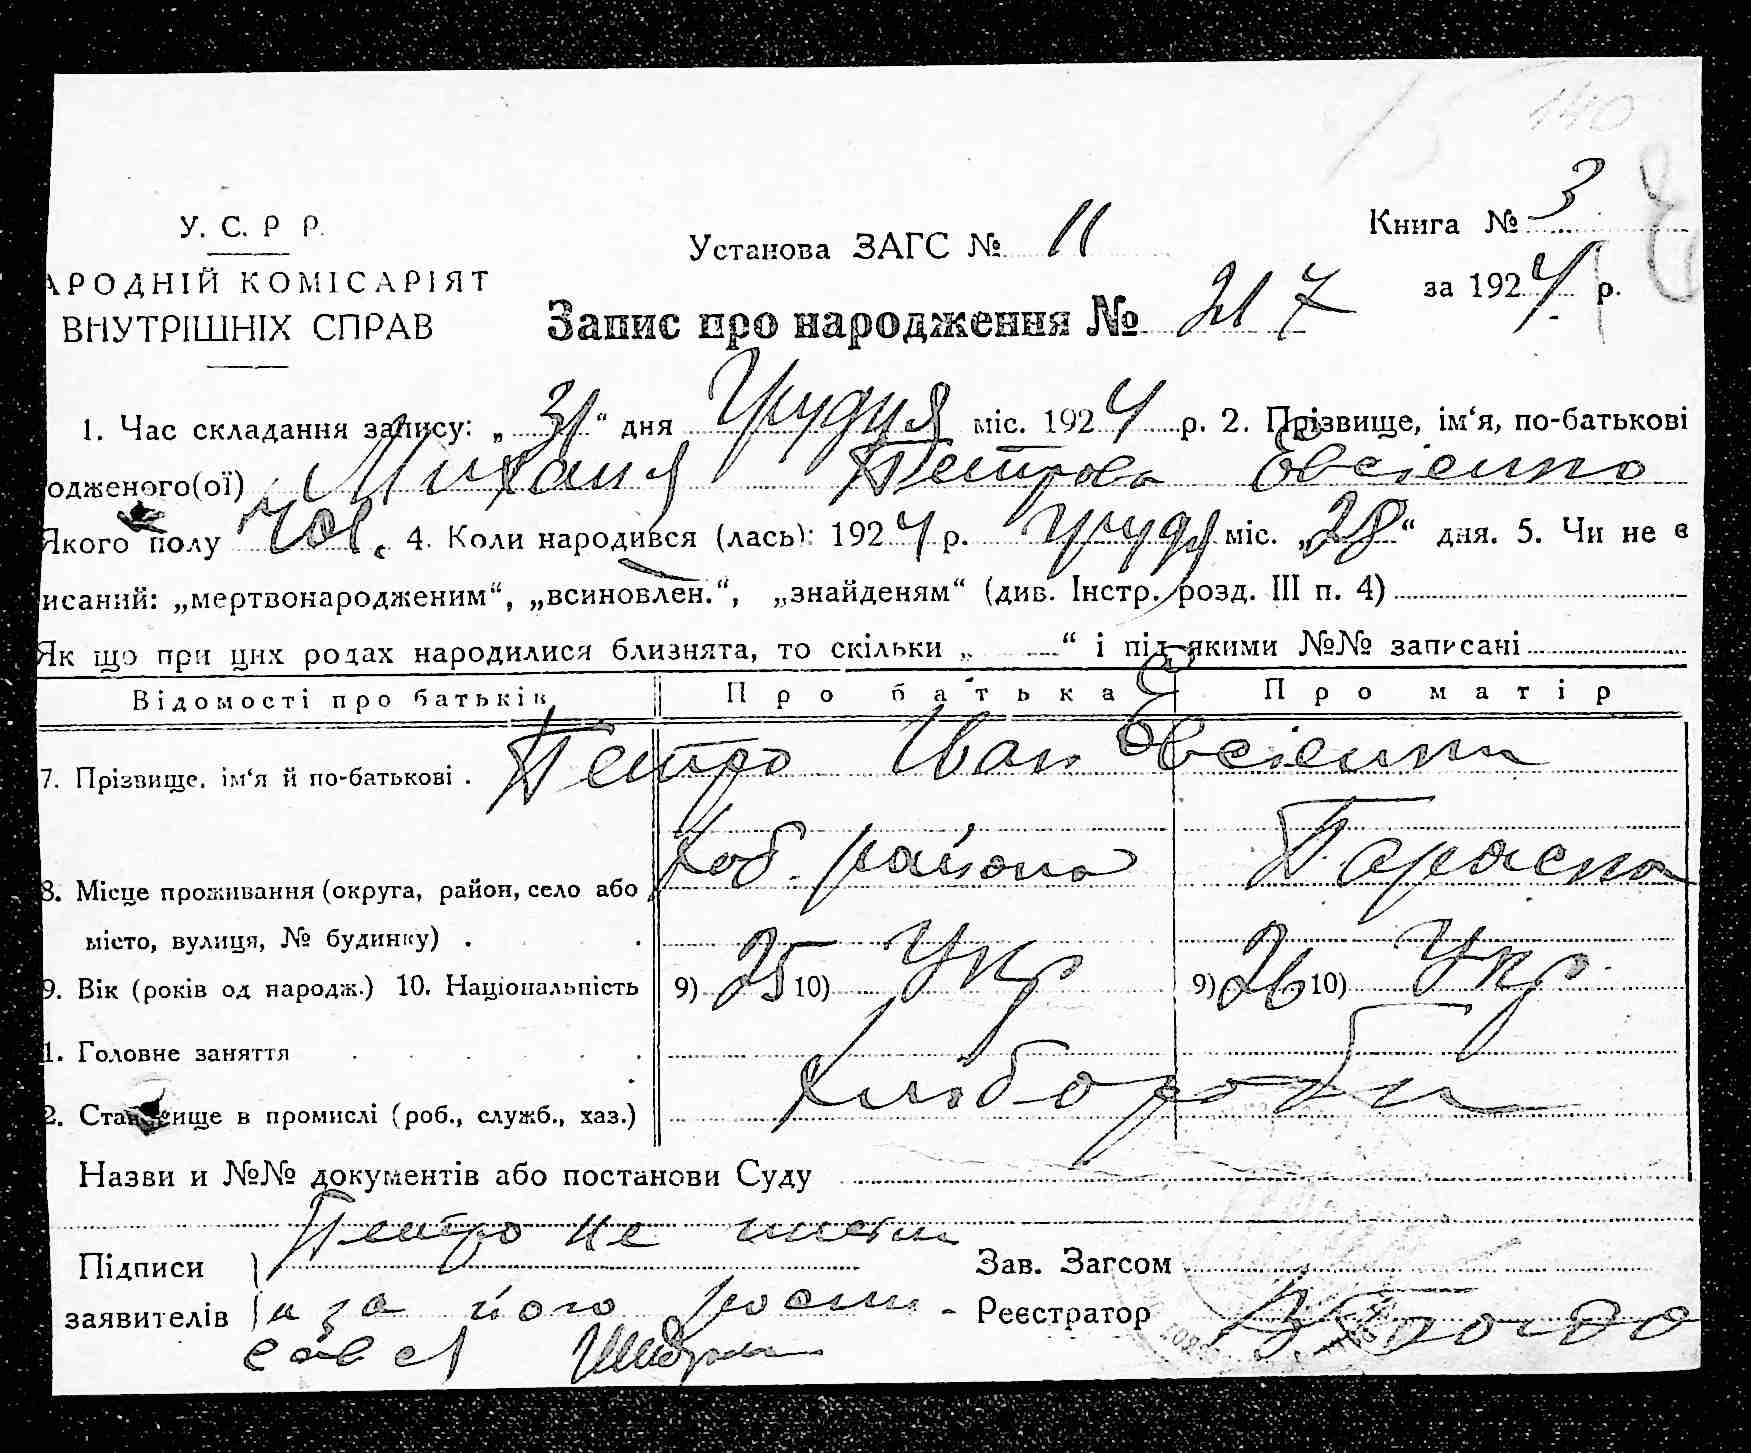 140
У. С. Р Р.
Книга № 3
Установа ЗАГС № 11
АРОДНІЙ КОМІСАРІЯТ
за 1924 р.
ВНУТРІШНІХ СПРАВ
Запис про народження № 217
1. Час складання запису: „31“ дня Грудня міс. 1924 р. 2. Прізвище, ім‘я, по-батькові
одженого(ої) Михаил Петрова Евсіенко
Якого полу чол. 4. Коли народився (лась): 1924 р. груд міс. „28“ дня. 5. Чи не в
исаний: „мертвонародженим“, „всиновлен.“, „знайденям“ (див. Інстр. розд. III п. 4)
Як що при цих родах народилися близнята, то скільки „ “ і під якими №№ записані
Відомості про батьків Про батька Про матір
7. Прізвище, ім‘я й по-батькові . Петро Иван Евсіенки
8. Місце проживання (округа, район, село або Коб. района Параска
місто, вулиця, № будинку) .
9. Вік (років од народж.) 10. Національність 9) 25 10) Укр 9) 26 10) Укр.
1. Головне заняття
Хлібороби
2. Становище в промислі (роб., служб., хаз.)
Назви и №№ документів або постанови Суду
Петро не
Підписи Зав. Загсом
заявителів и за його - Реєстратор